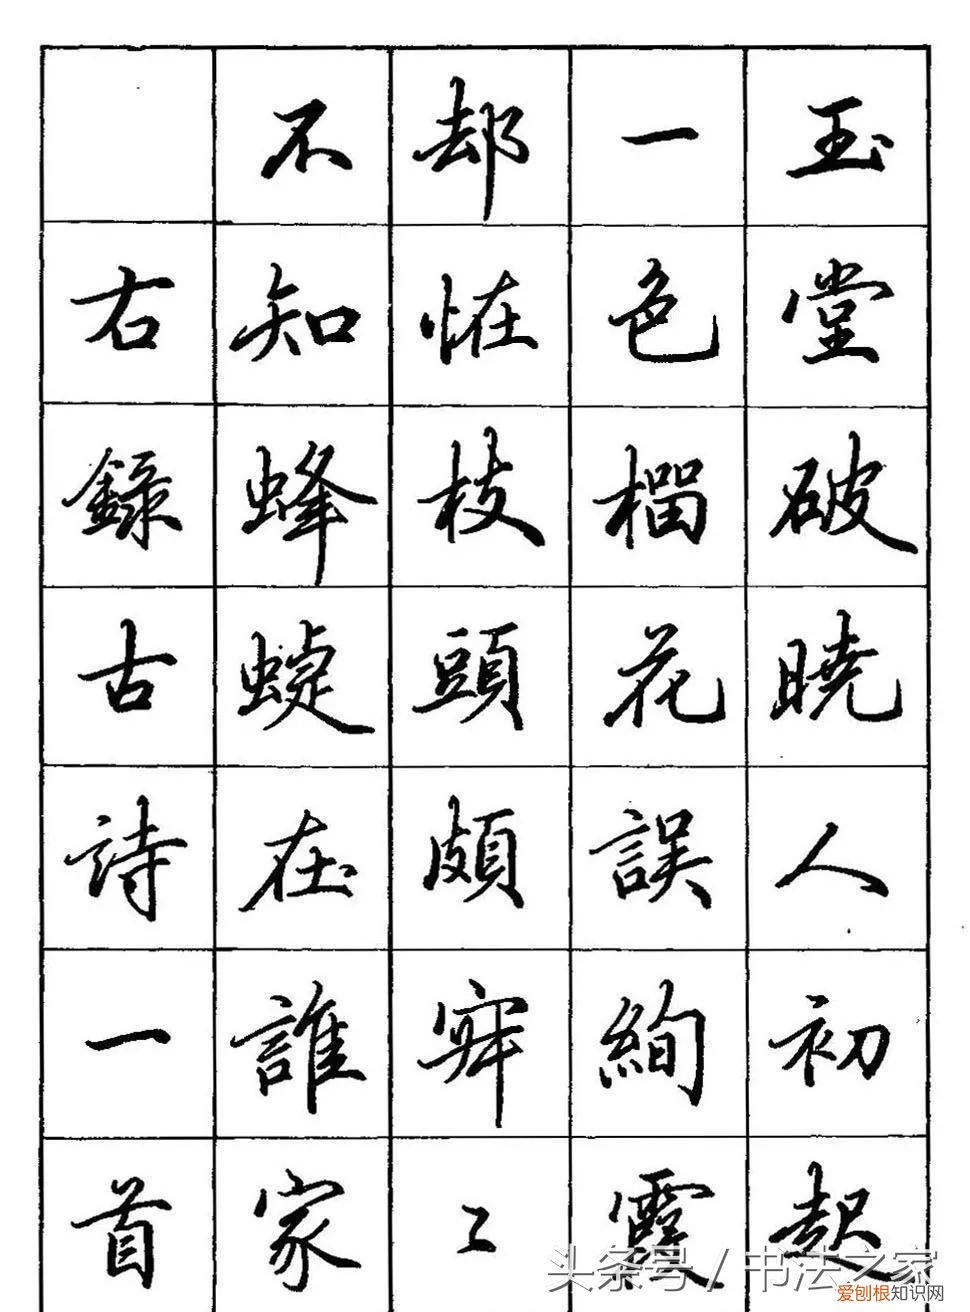 玉堂破曉人初起
一色榴花誤絢霞
却恠枝頭頗寂〻
不知蜂蜨在誰家
右錄古詩一首
头条号 / 书法之家
爱刨根知识网